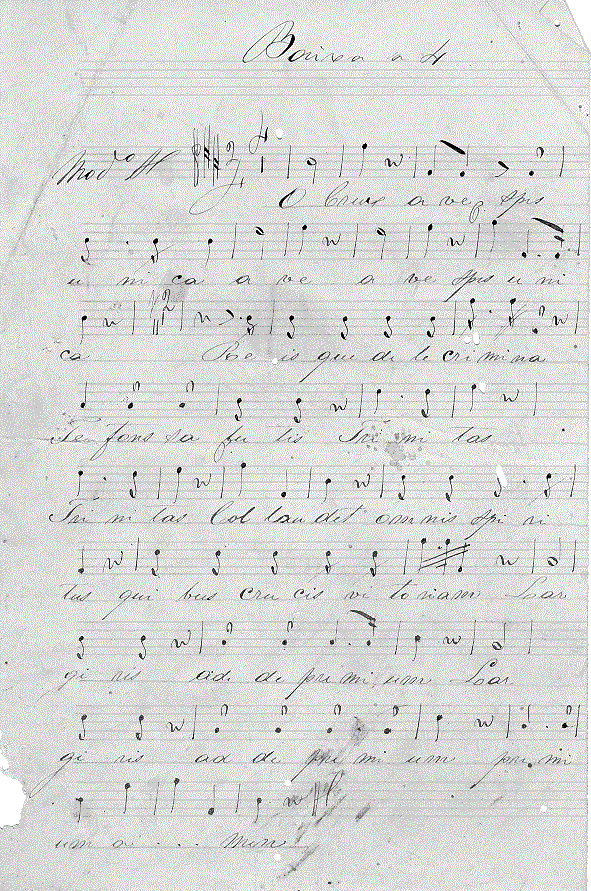 Baixa a 4
Mod.to
O Crux a ve spes
u ni ca a ve a ve spes u ni
ca Pae is que de le crimina
Te fons sa lu tis Tri ni tas
Tri ni tas Col lau det omnis spi ri
tus qui bus cru cis vi toriam Lar
gi ris ad de primi um Lar
gi ris ad de pre mi um premi
um a . . . men